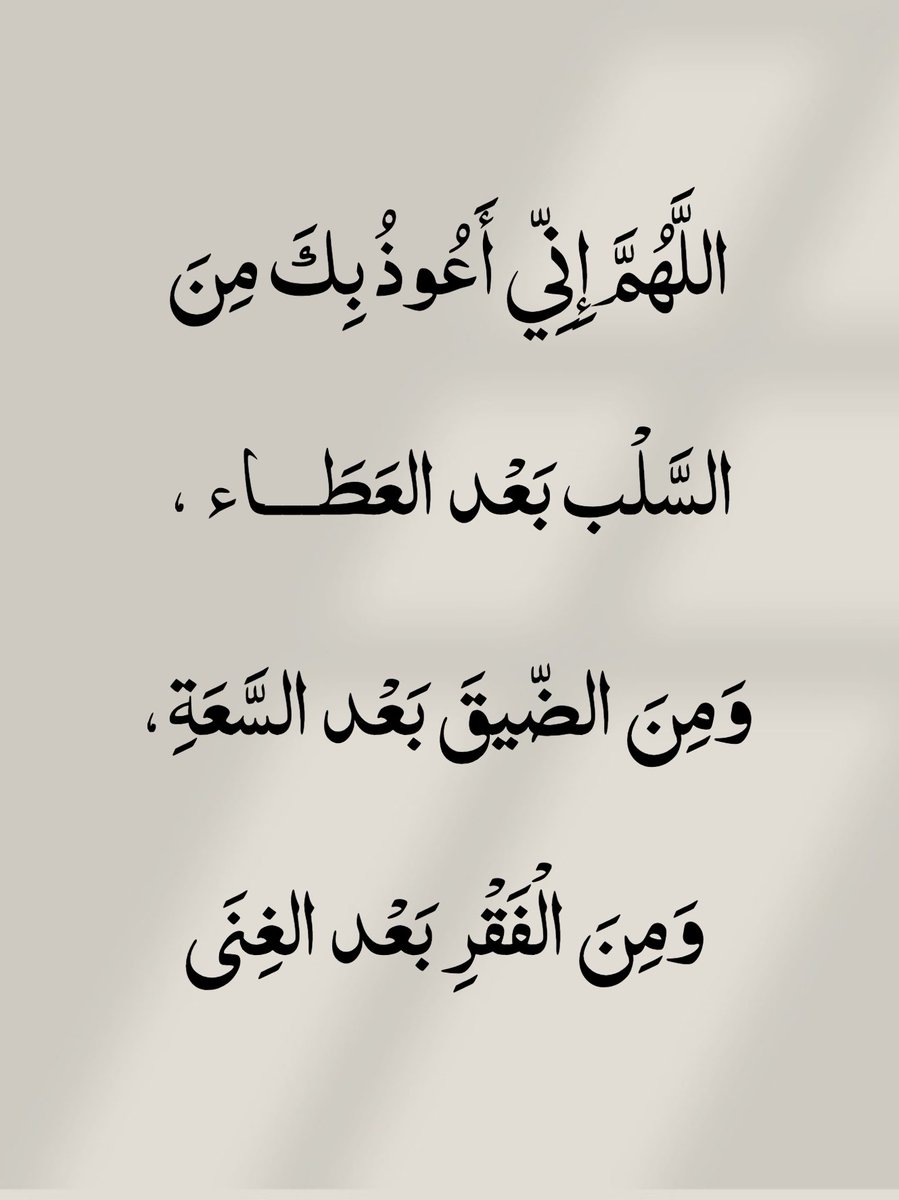 اللَّهُمَّ إِنِّي أَعُوذُ بِكَ مِنَ
السَّلْب بَعْد العَطَـــاء ،
وَمِنَ الضِّيقَ بَعْد السَّعَةِ،
وَمِنَ الْفَقْرِ بَعْد الغِنَى